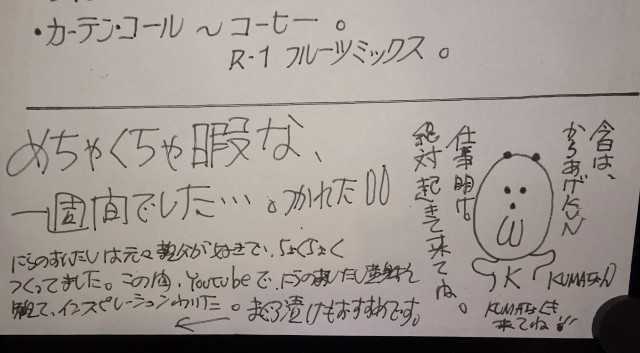 ・カーテン・コール 〜 コーヒー 。
R-1 フルーツミックス 。
めちゃくちゃ暇な、
一週間でしたいい。つかれた00
にらのおひたしは元々自分が好きで、ちょくちょく
つくってました。この間、Youtubeで、にらのおひたし
観て、インスピレーションわいた。まぐろ漬けもおすすめです。
今日は、
からあげKUN
仕事明け
絶対起きて来てね。
K
KUMAちゃん
KUMAちゃんも
来てね!!